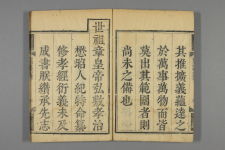 其推擴義蘊達之
於萬事萬物而皆
莫出其範圍者則
尚未之備也
世祖章皇帝弘敷孝治
懋昭人紀特命纂
修孝經衍義未及
成書朕纘承先志